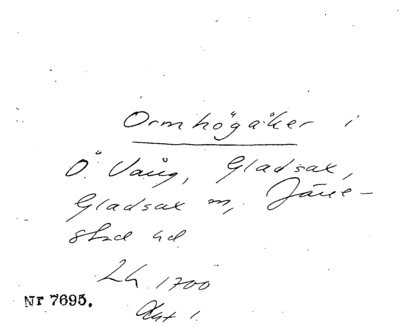 Ormhögåker i
Ö. Vång, Gladsax,
Gladsax sn, Järre-
stad hd
Lh 1700
Akt 1.
Nr 7695.